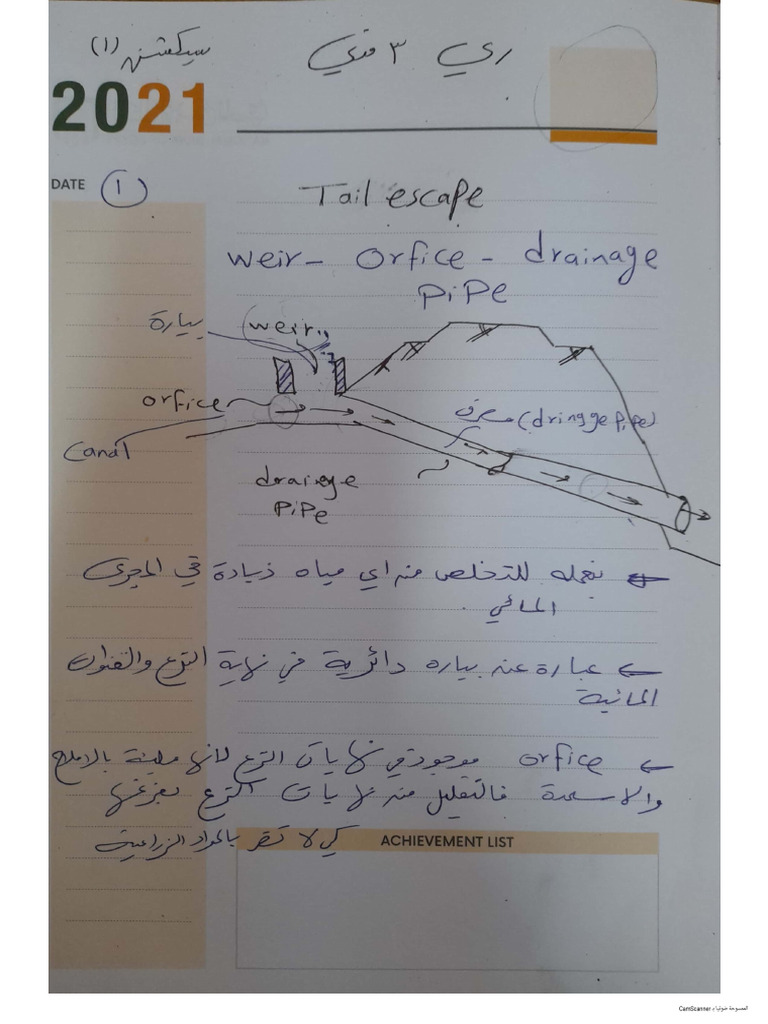 ري ٣ مدني
سيكشن (١)
2021
DATE ①
Tail escape
weir - Orfice - drainage
pipe
بيارة
(weir)
orfice
Canal
مصرف (dringge pipe)
drainege
pipe
← نعمله للتخلص من اي مياه ذيادة في المجرى
المائي.
← عبارة عن بياره دائرية في نهاية الترع والقنوات
المائية
← orfice موجودة في نهايات الترع لانها مليئة بالاملاح
والاسمدة فالتقليل من نهايات الترع بفرغها
كي لا تضر بالمواد الزراعية
ACHIEVEMENT LIST
الممسوحة ضوئيا بـ CamScanner